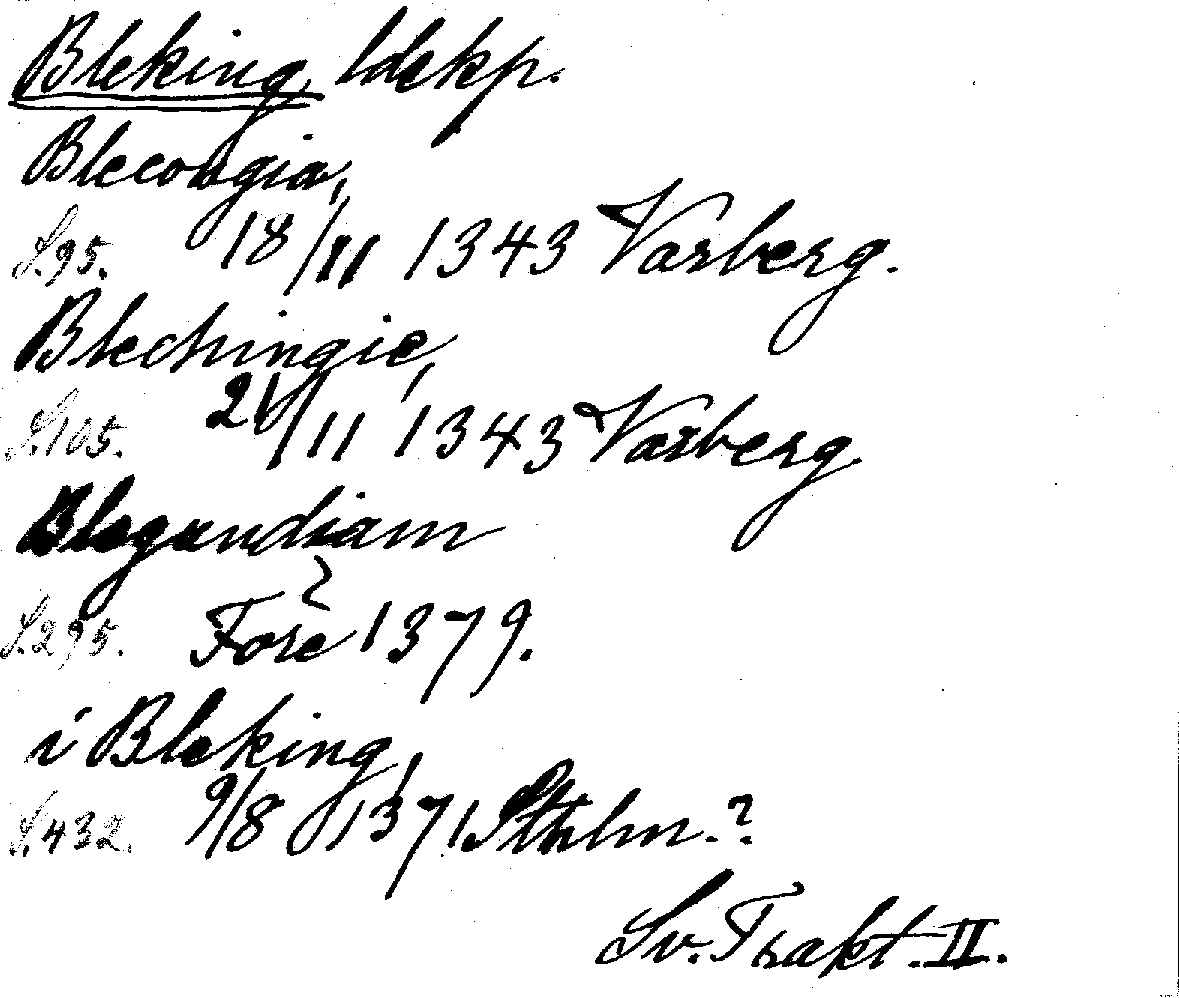 Bleking, ldskp.
Blecongia,
S. 95. 18/11 1343 Varberg.
Blechingie,
S. 105. 21/11 1343 Varberg.
Blegundiam
S. 295. Före 1379.
i Bleking,
S. 432. 9/8 1371 Sthlm.?
Sv. Trakt. II.